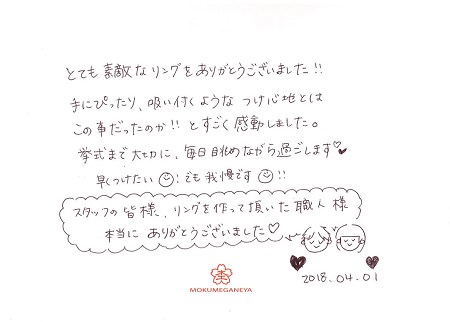 とても素敵なリングをありがとうございました!!
手にぴったり、吸い付くような つけ心地とは
この事だったのか!! と すごく 感動しました。
挙式まで大切に、毎日眺めながら過ごします♥
早くつけたい☺! でも 我慢です☺!!
スタッフの皆様、リングを作って頂いた職人様
本当に ありがとうございました♡
2018.04.01
MOKUMEGANEYA